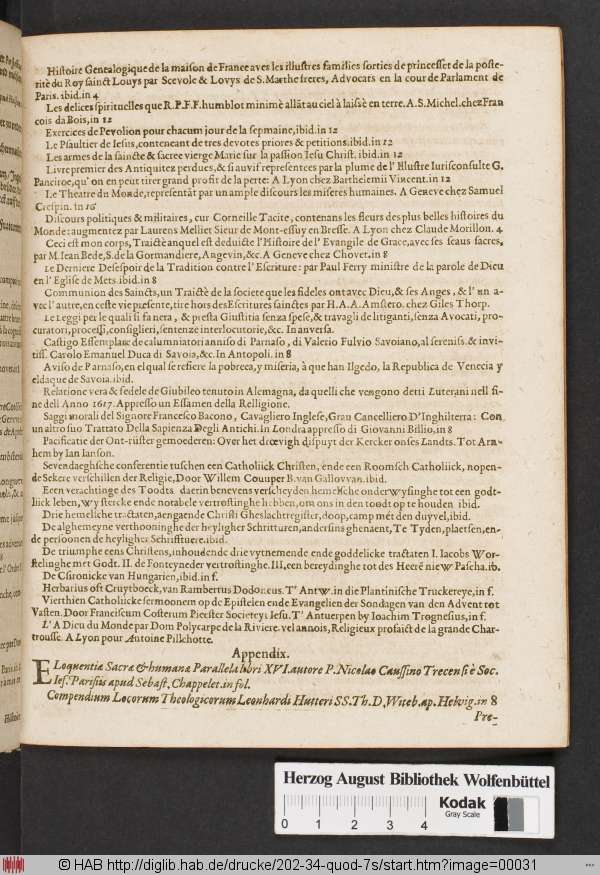 Histoire Genealogique de la maison de France aves les illustres familles sorties de princesset de la poste-
ritè du Roy sainct Louys par Scevole & Lovys de S. Marthe freres, Advocats en la cour de Parlament de
Paris. ibid. in 4
Les delices spirituelles que R. P. F. F. humblot minimè allãt au ciel à laissè en terre. A S. Michel. chez Fran
cois da Bois, in 12
Exercices de Pevolion pour chacum jour de la sepmaine, ibid. in 12
Le Psaultier de Iesus, contencant de tres devotes priores & petitions. ibid. in 12
Les armes de la saincte & sacree vierge Marie sur la passion Iesu Christ. ibid. in 12
Livre premier des Antiquitez perdues, & si au vif representees par la plume de l' Illustre Iurisconsulte G.
Panciroe, qu' on en peut tirer grand profit de la perte: A Lyon chez Barthelemii Vincent. in 12
Le Theatre du Monde, representãt par un ample discours les miseres humaines. A Geneve chez Samuel
Crespin. in 16
Discours politiques & militaires, cur Corneille Tacite, contenans les fleurs des plus belles histoires du
Monde: augmentez par Laurens Melliet Sieur de Mont-essuy en Bresse. A Lyon chez Claude Morillon. 4
Ceci est mon corps, Traictè anquel est deduicte l' Histoire de l' Evangile de Grace, avec ses seaus sacres,
par M. Iean Bede, S. de la Gormandiere, Angevin, &c. A Geneve chez Chovet. in 8
Le Derniere Desespoir de la Tradition contre l' Escriture: par Paul Ferry ministre de la parole de Dieu
en l' Eglise de Mets. ibid. in 8
Communion des Saincts, un Traictè de la societe que les fideles ont avec Dieu, & ses Anges, & l' un a-
vec l' autre, en ceste vie presente, tire hors des Escritures sainctes par H. A. A Amstero. chez Giles Thorp.
Le Leggi per le quali si fa nera, & presta Giustitia senza spese, & travagli de litiganti, senza Avocati, pro-
curatori, processi, consiglieri, sentenze interlocutorie, &c. In anversa.
Castigo Essemplare de calumniatori anniso di Parnaso, di Valerio Fulvio Savoiano, al sereniss. & invi-
tiss. Carolo Emanuel Duca di Savoia, &c. In Antopoli. in 8
Aviso de Parnaso, en el qual se refiere la pobreza, y miseria, à que han llgedo, la Republica de Venecia y
el daque de Savoia. ibid.
Relatione vera & fedele de Giubileo tenuto in Alemagna, da quelli che vengono detti Luterani nell fi-
ne dell Anno 1617. Appresso un Essamen della Relligione.
Saggi morali del Signore Francesco Bacono, Cavagliero Inglese, Gran Cancelliero D'Inghilterra: Con
un altro suo Trattato Della Sapienza Degli Antichi. In Londra appresso di Giovanni Billio, in 8
Pacificatie der Ont-rüster gemoederen: Over het droevigh dispuyt der Kercker onses Landts. Tot Arn-
hem by Ian Ianson.
Sevendaeghsche conserentie tuschen een Catholiick Christen, ende een Roomsch Catholiick, nopen-
de Sekere verschillen der Religie, Door Willem Couuper B. van Gallovvan. ibid.
Eeen verachtinge des Toodts daerin benevens verscheyden hemelsche onderwysinghe tot een godt-
liick leben, wy stercke ende notabele vertrostinghe hebben, om ons in den toodt op te houden ibid.
Drie hemelsche tractaten, aengaende Christi Gheslachtregister, doop, camp mét den duyvel, ibid.
De alghemeyne verthooninghe der heyligher Schritturen, andersins ghenaent, Te Tyden, plaetsen, en-
de persoonen de heyligher Schrifftuere. ibid.
De triumphe eens Christens, inhoudende drie vytnemende ende goddelicke tractaten I. Iacobs Wor-
stelinghe met Godt. II. de Fonteyneder vertrostinghe. III. een bereydinghe tot des Heerē niew Pascha. ib.
De Csironicke van Hungarien, ibid. in f.
Herbarius oft Cruytboeck, van Rambertus Dodoneus. T' Antw. in die Plantinische Truckereye, in f.
Vierthien Catholiicke sermoonem op de Epistelen ende Evangelien der Sondagen van den Advent tot
Vasten. Door Franciscum Costerum Piecster Societeyt Iesu. T' Antuerpen by Ioachim Trognesius, in f.
L' A Dieu du Monde par Dom Polycarpe de la Riviere. vel annois, Religieux profaict de la grande Char-
trousse. A Lyon pour Antoine Pillchotte.
Appendix.
ELoquentiæ Sacræ & humanæ Parallela libri XVI. autore P. Nicolao Caussino Trecensi è Soc.
Ies. Parisiis apud Sebast. Chappelet. in fol.
Compendium Locorum Theologicorum Leonhardi Hutteri SS. Th. D. Witeb. ap. Helvig. in 8
Pre-
Herzog August Bibliothek Wolfenbüttel
0 1 2 3 4
Kodak
Gray Scale
© HAB http://diglib.hab.de/drucke/202-34-quod-7s/start.htm?image=00031